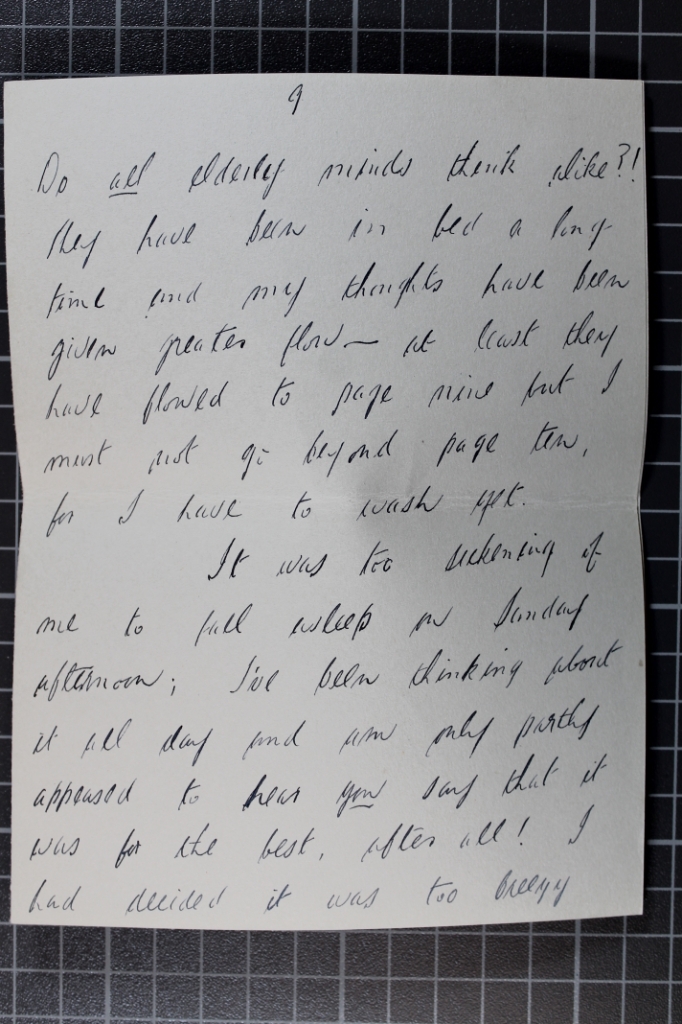 9
Do all elderly minds think alike?!
They have been in bed a long
time and my thoughts have been
given greater flow — at least they
have flowed to page nine but I
must not go beyond page ten,
for I have to wash yet.
It was too sickening of
me to fall asleep on Sunday
afternoon; I've been thinking about
it all day and am only partly
appeased to hear you say that it
was for the best, after all! I
had decided it was too breezy